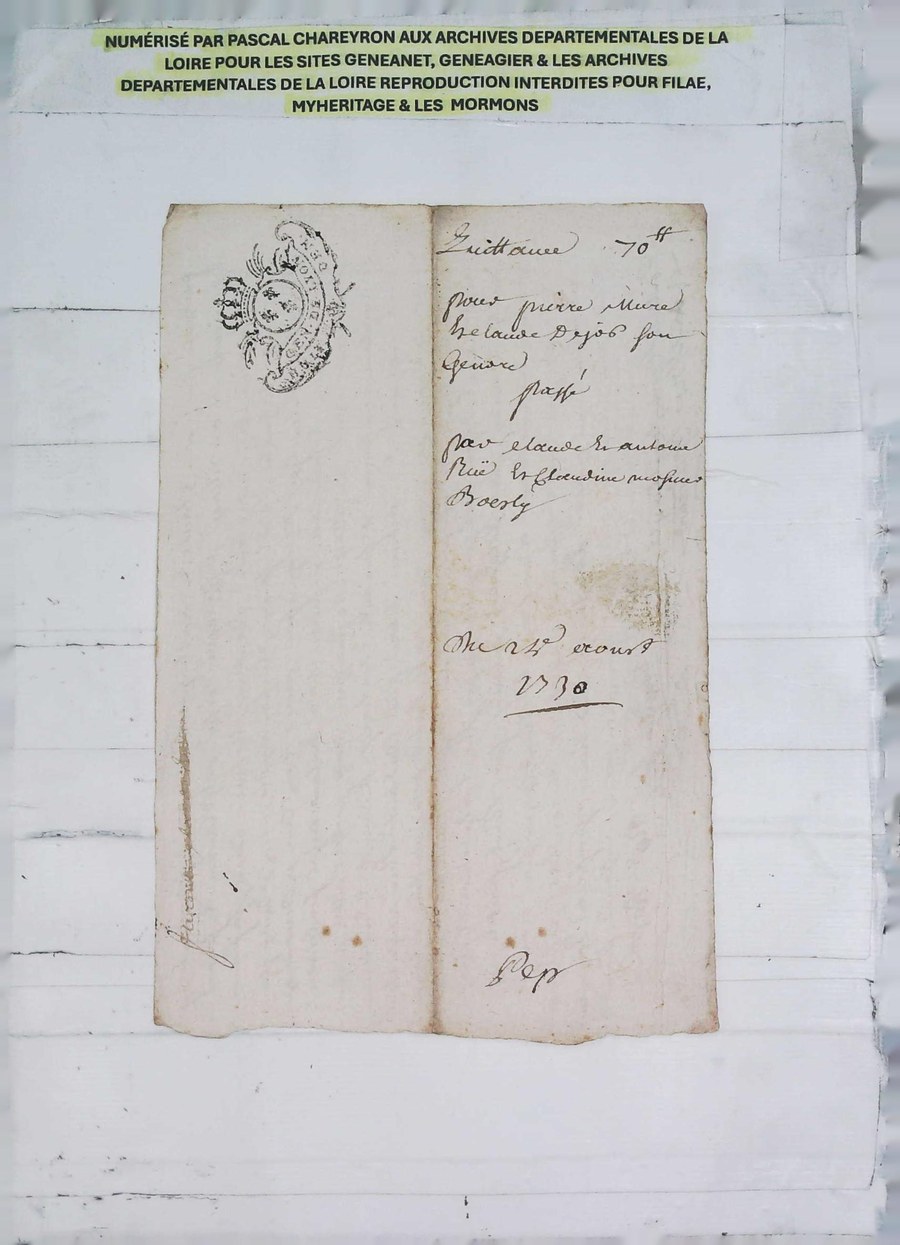 NUMÉRISÉ PAR PASCAL CHAREYRON AUX ARCHIVES DEPARTEMENTALES DE LA
LOIRE POUR LES SITES GENEANET, GENEAGIER & LES ARCHIVES
DEPARTEMENTALES DE LA LOIRE REPRODUCTION INTERDITES POUR FILAE,
MYHERITAGE & LES MORMONS
Quittance 70ᵗᵗ
pour pierre Mure
Et claude Dejob son
Genore
passé
par claude Et antoine
Et Claudine
Du 24e aoust
1730